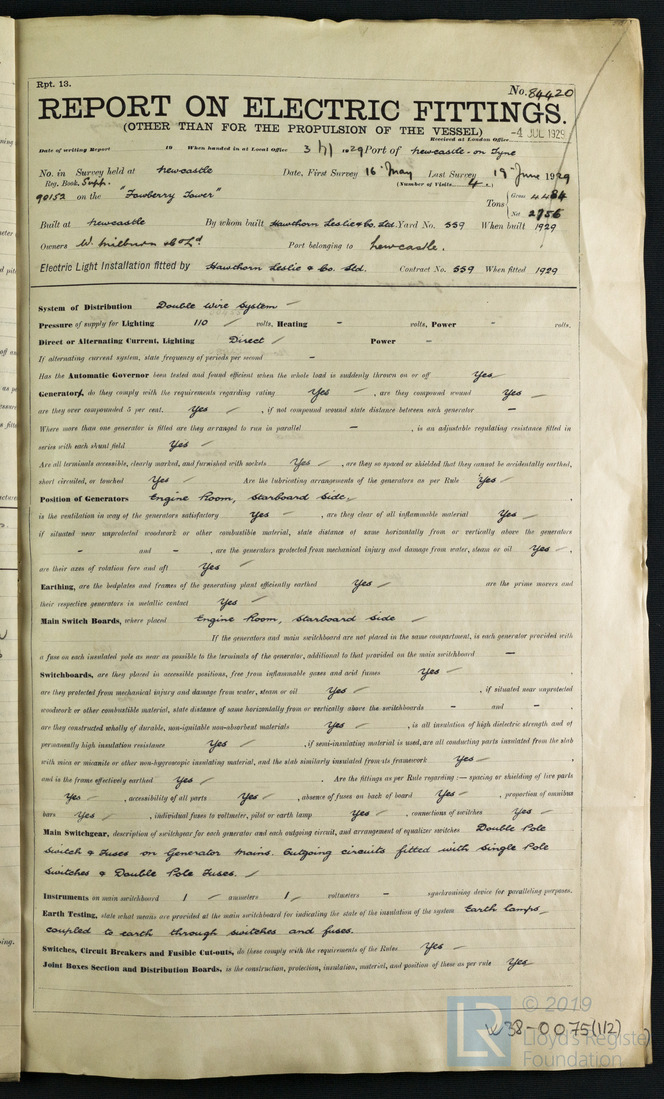 Rpt. 13.
No. 84420
REPORT ON ELECTRIC FITTINGS.
(OTHER THAN FOR THE PROPULSION OF THE VESSEL)
Received at London Office -4 JUL 1929
Date of writing Report 19 When handed in at Local Office 3/7/1929 Port of Newcastle-on-Tyne
No. in Survey held at Newcastle Date, First Survey 16 May Last Survey 19 June 1929
Reg. Book. Supp. (Number of Visits 4.)
90152 on the "Fowberry Tower" Tons Gross 4484
Net 2756
Built at Newcastle By whom built Hawthorn Leslie & Co. Ltd. Yard No. 559 When built 1929
Owners W. Milburn & Co Ld Port belonging to Newcastle.
Electric Light Installation fitted by Hawthorn Leslie & Co. Ltd. Contract No. 559 When fitted 1929
System of Distribution Double Wire System
Pressure of supply for Lighting 110 volts, Heating - volts, Power - volts.
Direct or Alternating Current, Lighting Direct Power -
If alternating current system, state frequency of periods per second -
Has the Automatic Governor been tested and found efficient when the whole load is suddenly thrown on or off Yes
Generators, do they comply with the requirements regarding rating Yes , are they compound wound Yes
are they over compounded 5 per cent. Yes , if not compound wound state distance between each generator -
Where more than one generator is fitted are they arranged to run in parallel - , is an adjustable regulating resistance fitted in
series with each shunt field Yes
Are all terminals accessible, clearly marked, and furnished with sockets Yes , are they so spaced or shielded that they cannot be accidentally earthed,
short circuited, or touched Yes Are the lubricating arrangements of the generators as per Rule Yes
Position of Generators Engine Room, Starboard Side,
is the ventilation in way of the generators satisfactory Yes , are they clear of all inflammable material Yes
if situated near unprotected woodwork or other combustible material, state distance of same horizontally from or vertically above the generators
- and - , are the generators protected from mechanical injury and damage from water, steam or oil Yes ,
are their axes of rotation fore and aft Yes
Earthing, are the bedplates and frames of the generating plant efficiently earthed Yes are the prime movers and
their respective generators in metallic contact Yes
Main Switch Boards, where placed Engine Room, Starboard Side
If the generators and main switchboard are not placed in the same compartment, is each generator provided with
a fuse on each insulated pole as near as possible to the terminals of the generator, additional to that provided on the main switchboard -
Switchboards, are they placed in accessible positions, free from inflammable gases and acid fumes Yes ,
are they protected from mechanical injury and damage from water, steam or oil Yes , if situated near unprotected
woodwork or other combustible material, state distance of same horizontally from or vertically above the switchboards - and - ,
are they constructed wholly of durable, non-ignitable non-absorbent materials Yes , is all insulation of high dielectric strength and of
permanently high insulation resistance Yes , if semi-insulating material is used, are all conducting parts insulated from the slab
with mica or micanite or other non-hygroscopic insulating material, and the slab similarly insulated from its framework Yes ,
and is the frame effectively earthed Yes . Are the fittings as per Rule regarding :— spacing or shielding of live parts
Yes , accessibility of all parts Yes , absence of fuses on back of board Yes , proportion of omnibus
bars Yes , individual fuses to voltmeter, pilot or earth lamp Yes , connections of switches Yes .
Main Switchgear, description of switchgear for each generator and each outgoing circuit, and arrangement of equalizer switches Double Pole
Switch & Fuses on Generator Mains. Outgoing circuits fitted with Single Pole
Switches & Double Pole Fuses.
Instruments on main switchboard 1 ammeters 1 voltmeters - synchronising device for paralleling purposes.
Earth Testing, state what means are provided at the main switchboard for indicating the state of the insulation of the system Earth lamps,
coupled to earth through switches and fuses.
Switches, Circuit Breakers and Fusible Cut-outs, do these comply with the requirements of the Rules Yes
Joint Boxes Section and Distribution Boards, is the construction, protection, insulation, material, and position of these as per rule Yes
© 2019
W38-0075(1/2)
LR Lloyd's Register
Foundation